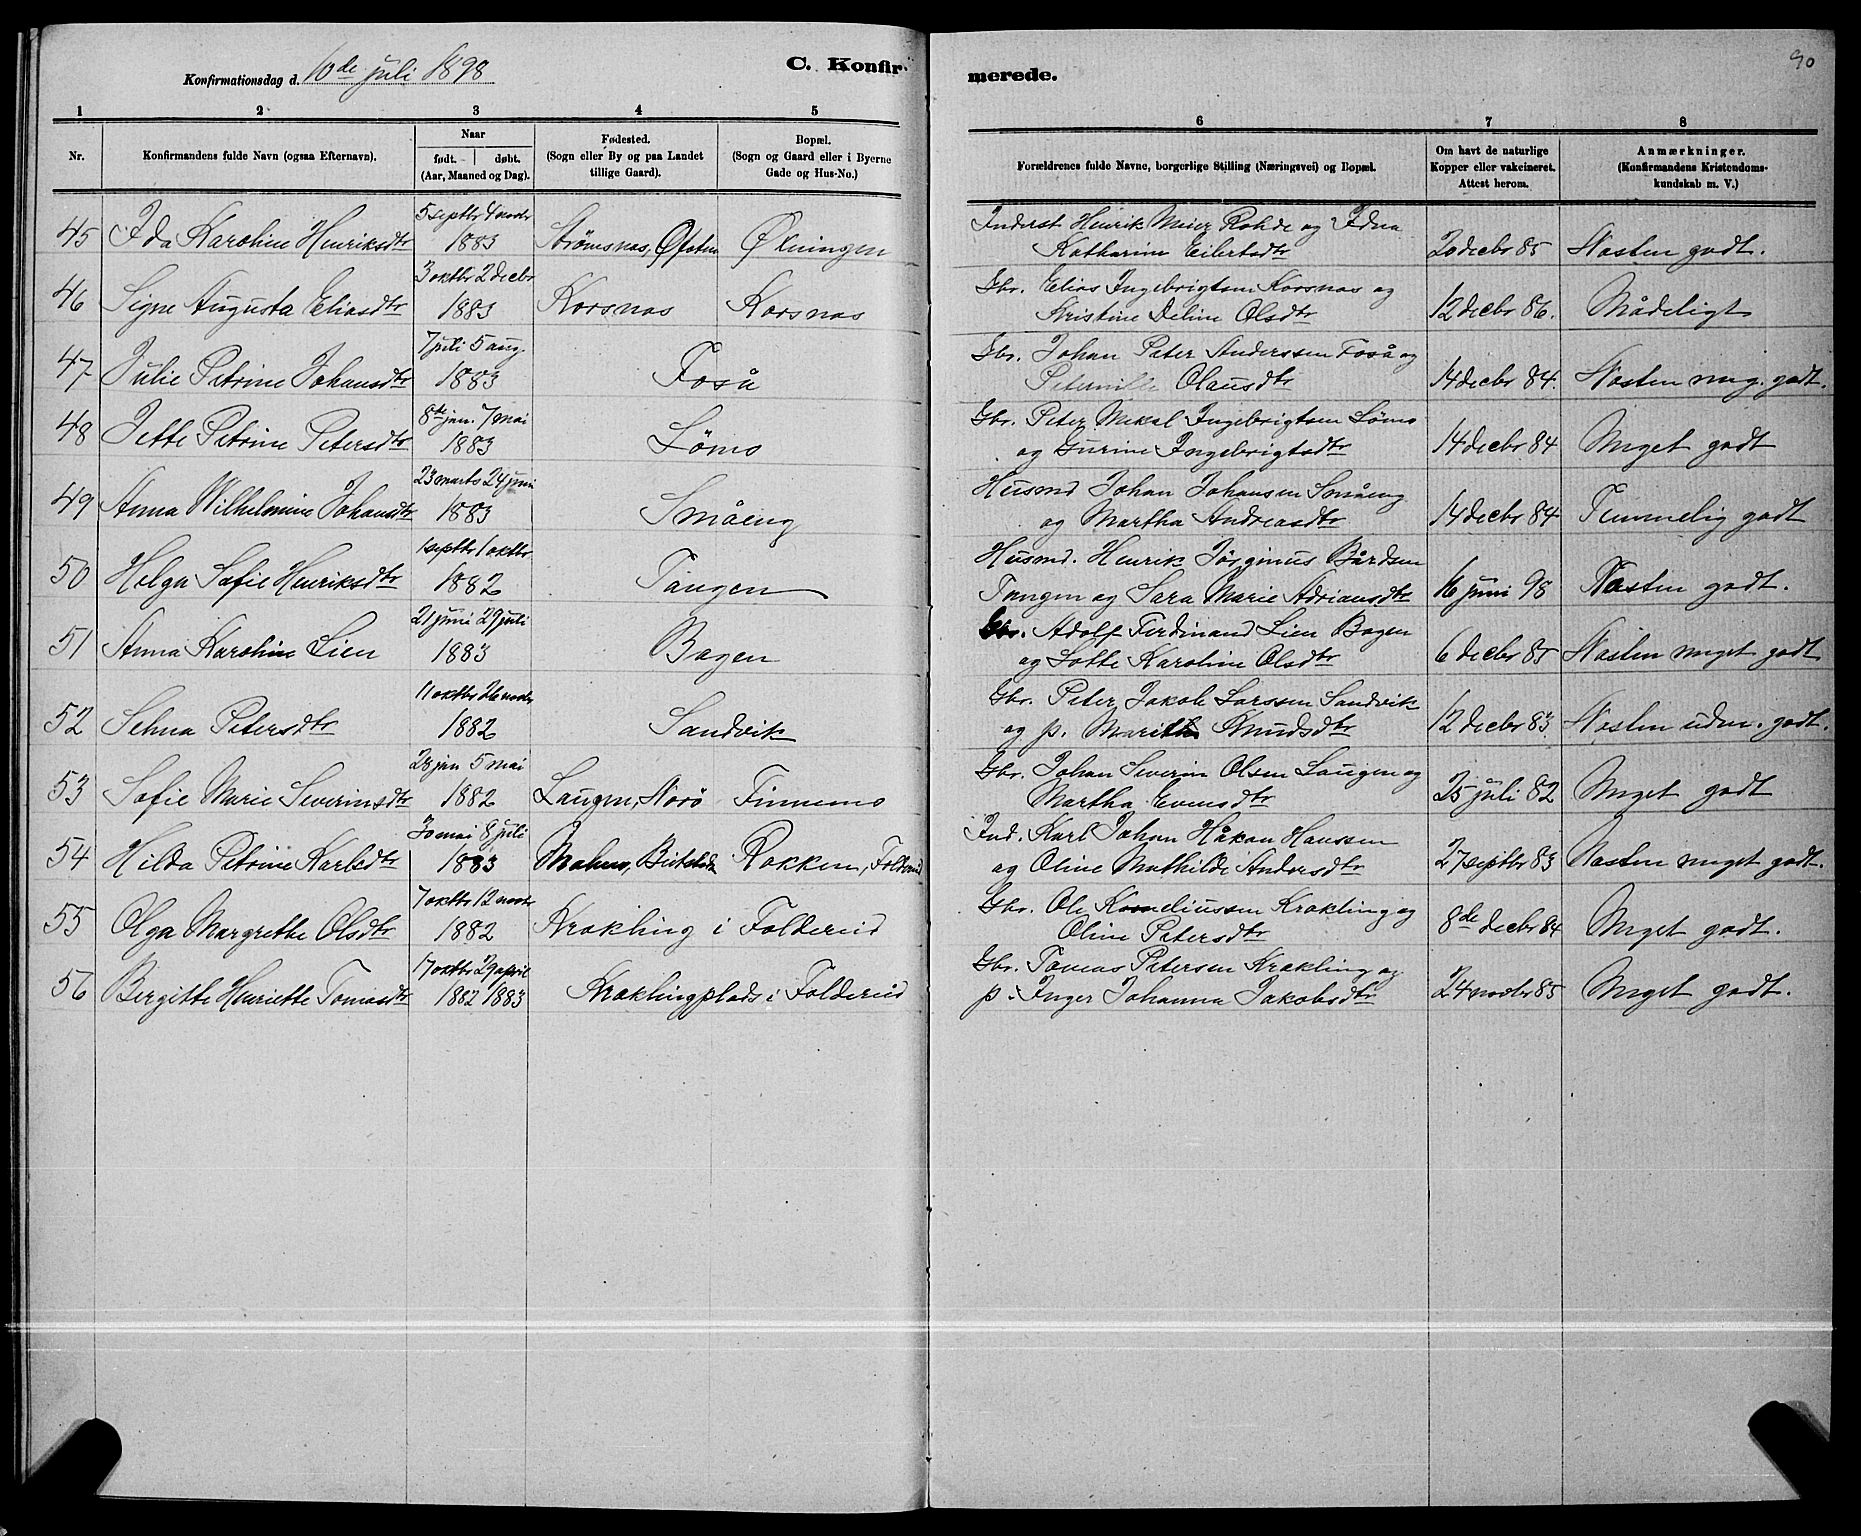 Konfirmationsdag d. 10de juli 1898
C. Konfirmerede.
90
1 2 3 4 5 6 7 8
Nr.
Konfirmandens fulde Navn (ogsaa Efternavn).
Naar født. døbt. (Aar, Maaned og Dag).
Fødested. (Sogn eller By og paa Landet tillige Gaard).
Bopæl. (Sogn og Gaard eller i Byerne Gade og Hus-No.)
Forældrenes fulde Navne, borgerlige Stilling (Næringsvei) og Bopæl.
Om havt de naturlige Kopper eller vakcineret. Attest herom.
Anmærkninger. (Konfirmandens Kristendomskundskab m. V.)
45 Ida Karoline Henriksdtr 5 septbr 4 novbr 1883 Strömsnas, Øfoten Ølningen Inderst Henrik Meier Rohde og Edna
Katharina Eilertsdtr 20 decbr 85 Nasten godt.
46 Signe Augusta Eliasdtr 3 oktbr 2 decbr 1883 Korsnas Korsnas Gbr. Elias Ingebrigtsen Korsnas og
Kristine Deline Olsdtr 12 decbr 86. Mådeligt
47 Julie Petrine Johansdtr 7 juli 5 aug. 1883 Foså Gbr. Johan Peter Anderssen Foså og
Peternille Olausdtr 14 decbr 84. Nasten meg. godt.
48 Jette Petrine Petersdtr 8de jan. 7 mai 1883 Lömo Gbr. Peter Mekal Ingebrigtsen Lömo
og Gurine Ingebrigtsdtr 14 decbr 84 Meget godt
49 Anna Wilhelmine Johansdtr 23 marts 24 juni 1883 Småeng Husmd Johan Johansen Småeng
og Martha Andreasdtr 14 decbr 84 Temmelig godt
50 Helga Sofie Henriksdtr 1 septbr 1 oktbr 1882 Tangen Husmd. Henrik Jörginus Bårdsen
Tangen og Sara Marie Adriansdtr 16 juni 98 Nasten godt.
51 Anna Karoline Lien 21 juni 29 juli 1883 Bogen Gbr. Adolf Ferdinand Lien Bogen
og Lotte Karoline Olsdtr 6 decbr 85 Nasten meget godt
52 Selma Petersdtr 11 oktbr 26 novbr 1882 Sandvik Gbr. Peter Jakob Larssen Sandvik
og p. Marith Knudsdtr 12 decbr 83. Nasten udm. godt.
53 Sofie Marie Severinsdtr 28 jan 5 mai 1882 Laugen, Narö Finnemo Gbr. Johan Severin Olsen Laugen og
Martha Evensdtr 25 juli 82 Meget godt
54 Hilda Petrine Karlsdtr 30 mai 8 juli 1883 Malmo, Beitstad Rokken, Foldereid Ind. Karl Johan Håkan Hanssen
og Oline Mathilde Andersdtr 27 septbr 83 Nasten meget godt.
55 Olga Margrethe Olsdtr 7 oktbr 12 novbr 1882 Krakling i Foldereid Gbr. Ole Korneliussen Krakling og
Oline Petersdtr 8de decbr 84 Meget godt.
56 Bergitte Henriette Tomasdtr 17 oktbr 29 april 1882 1883 Kraklingplads i Foldereid Gbr. Tomas Petersen Krakling og
p. Inger Johanna Jakobsdtr 24 novbr 85 Meget godt.